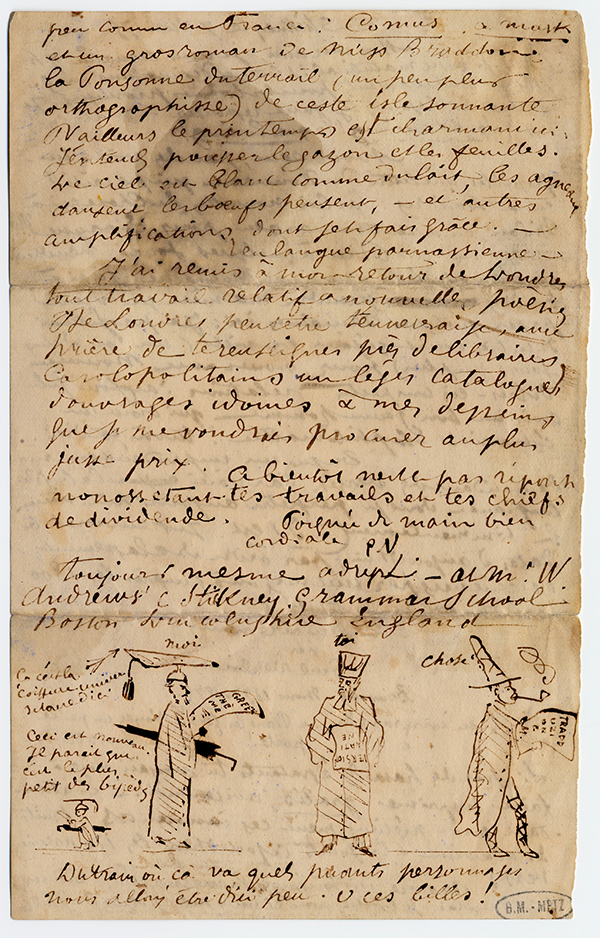 peu connu en France : Comus, a mask
et un gros roman de Miss Braddon,
la Ponson du terrail (un peu plus
orthographisse) de ceste isle sonnante
D'ailleurs le printemps est charmant ici.
J'entends pousser le gazon et les feuilles.
Le ciel est blanc comme du lait, les agneaux
dansent les bœufs pensent, – et autres
amplifications dont je te fais grâce. –
en langue parnassienne –
J'ai remis à mon retour de Londres
tout travail relatif a nouvelle, poésie
De Londres peut être t'enverrai-je, avec
prière de te renseigner près de libraires
Carolopolitains un léger catalogue
d'ouvrages idoines à mes desseins
que je me voudrais procurer au plus
juste prix.
A bientôt n'est-ce pas réponse
nonosstant tes travails et tes chiefs
de dividende. Poignée de main bien
cordiale
P.V
toujours mesme – at Mr. W
Andrews' Stikney Grammar School
Boston Lincolnshire England
moi
toi
chose
Ça c'est la
coiffure
d'ici
Ceci est nouveau.
Il parait que
c'est le plus
petit des bipeds
THE GREEK
THE
VERSION
LATINE
TRAD
Du train où ça va quels pédants personnages
nous allons être d'ici peu. O ces billes !
B.M. - METZ